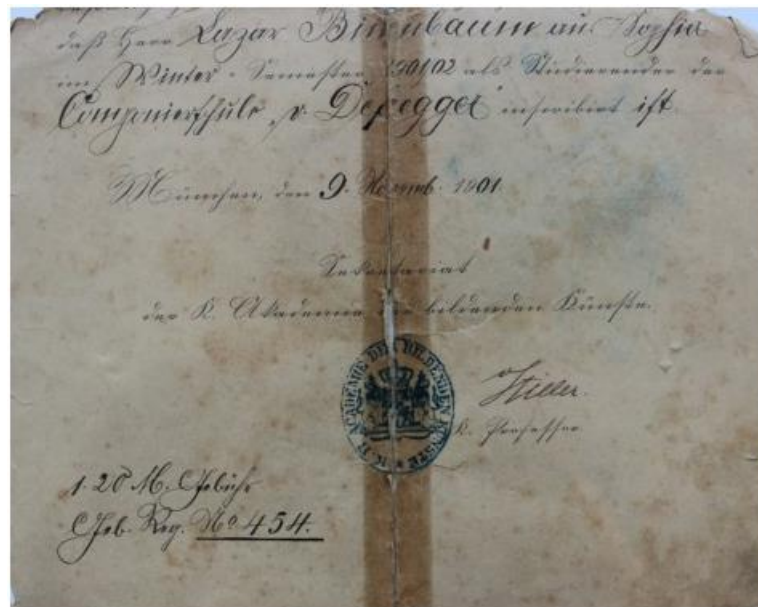 daß Herr Lazar Birnbaum aus Sophia
im Winter-Semester 1901/02 als Studierender der
Componierschule v. Defregger inscribirt ist.
München, den 9. Novemb. 1901.
Sekretariat
der K. Akademie der bildenden Künste.
K. B. ACADEMIE DER BILDENDEN KÜNSTE
K. Professor.
1. 20 M. Gebühr
Geb. Reg. No. 454.